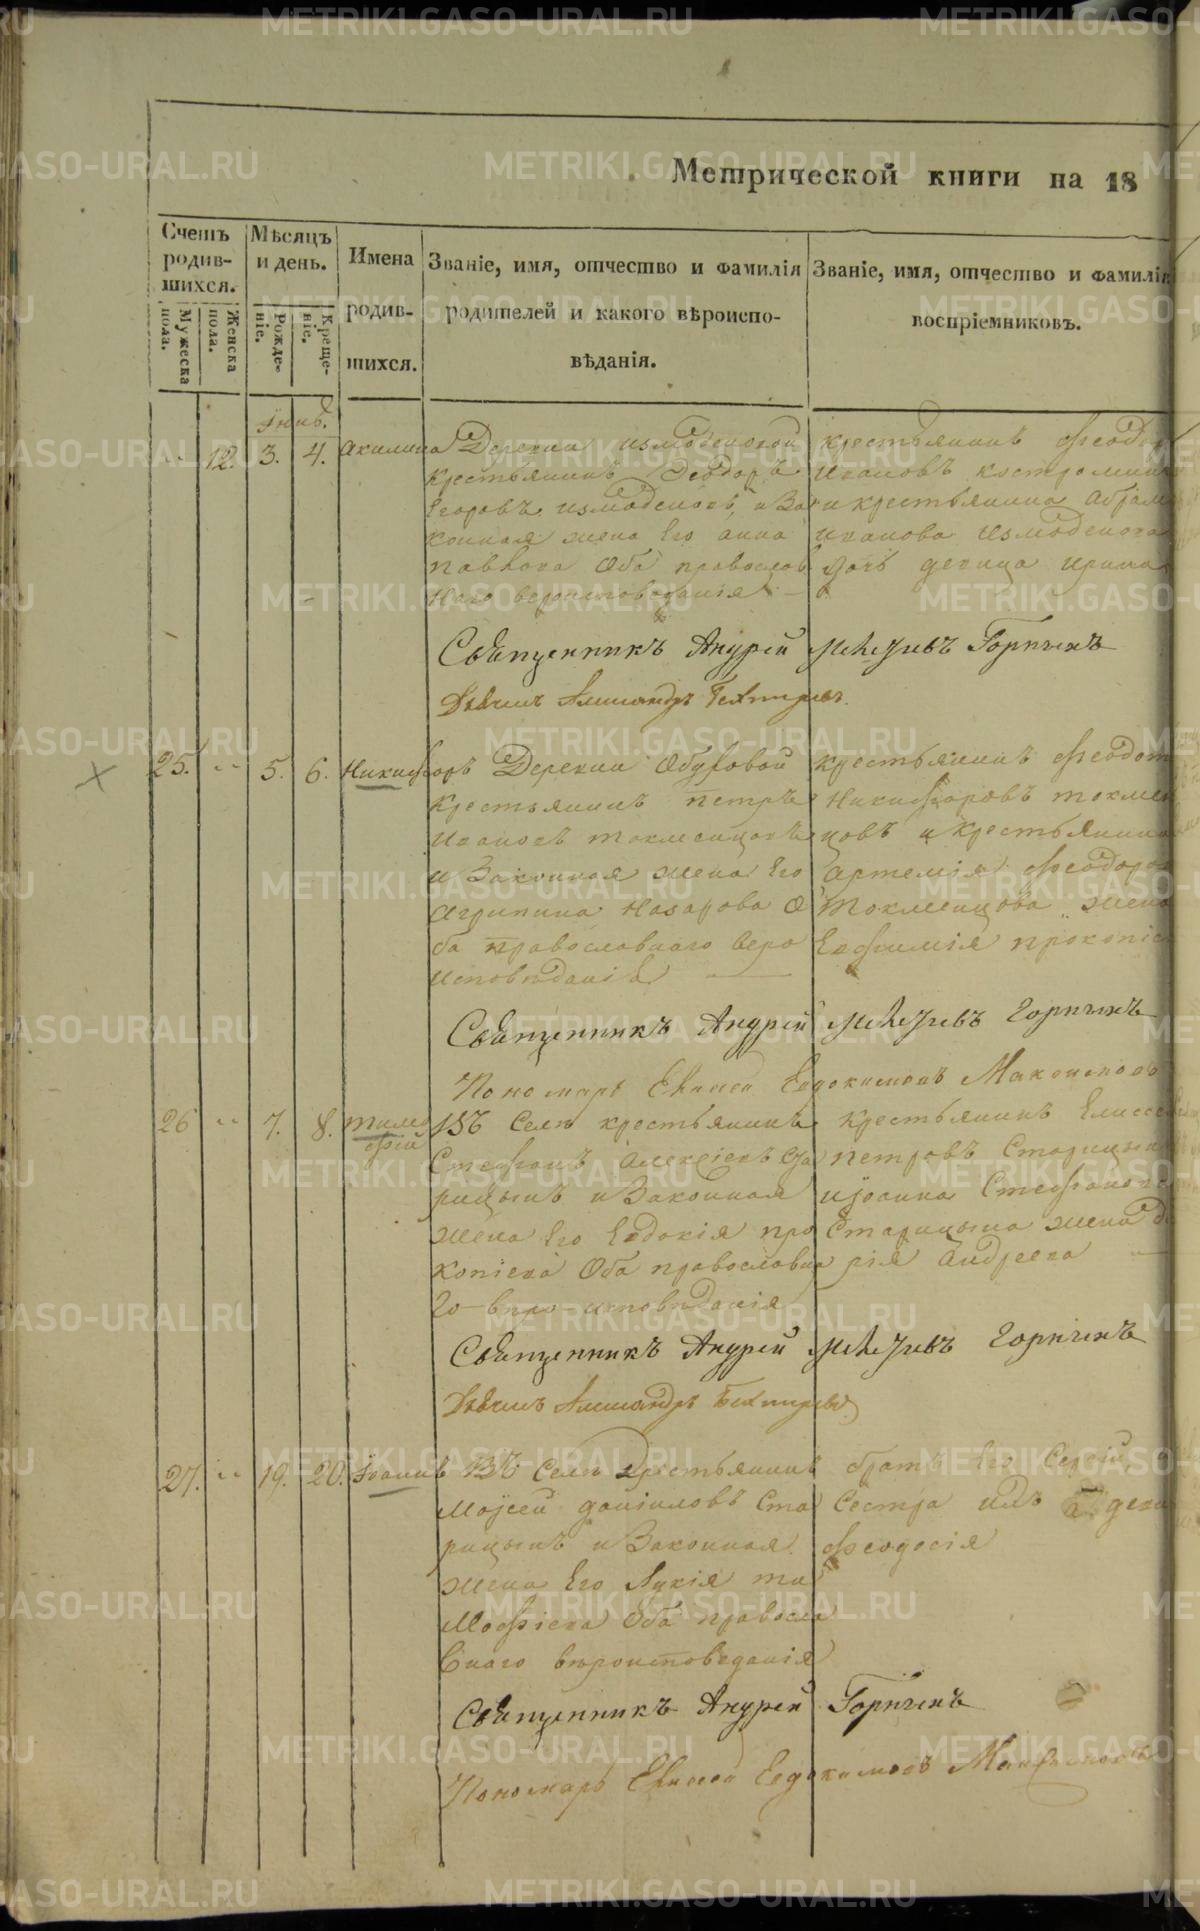 Метрической книги на 18
Счетъ родив-шихся.
Мужеска пола.
Женска пола.
Мѣсяцъ и день.
Рожде-ніе.
Креще-ніе.
Имена родив-шихся.
Званіе, имя, отчество и фамилія родителей и какого вѣроиспо-вѣданія.
Званіе, имя, отчество и фамилія воспріемниковъ.
12. 3. 4. Акилина
Деревни Измоденовой
крестьянинъ Феодоръ
Егоровъ Измоденовъ и За
конная жена Его анна
павлова Оба православ
наго вероисповеданія
крестьянинъ Феодоръ
Ивановъ костромин
и крестьянина Абрам
Иванова Измоденова
дочь девица Ирина
Священникъ Андрей Горныхъ
Дьячекъ Александръ
25. 5. 6. Никифоръ
Деревни Обуховой
крестьянинъ петръ
Ивановъ токменцовъ
и Законная жена Его
Агрипина Назарова О
ба православнаго веро
исповѣданія
крестьянинъ Феодот
Никифоровъ токмен
цовъ и крестьянина
Артемія Феодоров
Токменцова жена
Евфимія прокопіе
Священникъ Андрей
Пономарь Евдокимовъ
26 7. 8. Тимо
фій
Въ Селѣ крестьянинъ
Стефанъ Алексіевъ Ста
рицынъ и Законная
жена Его Евдокія про
копіева Оба православна
го вѣро-исповѣданія
крестьянинъ Елиссе
петровъ Старицын
и Іоанна Стефанова
Старицына жена Да
рія Андреева
Священникъ Андрей
Дьячекъ Александръ
27. 19. 20. Іоаннъ
Въ Селѣ крестьянинъ
Моѵсей даніиловъ Ста
рицынъ и Законная
жена Его Лукія ти
мофіева Оба правосла
внаго вѣроисповеданія
братъ Его Сергій,
Сестра ихъ дев
Феодосія
Священникъ Андрей
Пономарь Евдокимовъ
METRIKI.GASO-URAL.RU